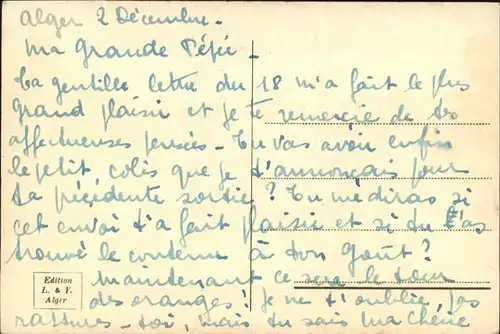 Alger 2 Décembre -
Ma Grande Pépée -
Ta gentille lettre du 18 m'a fait le plus
grand plaisir et je te remercie de tes
affectueuses pensées - Tu vas avoir enfin
le petit colis que je t'annonçais pour
ta précédente sortie ? Tu me diras si
cet envoi t'a fait plaisir et si tu as
trouvé le contenu à ton goût ?
Maintenant ce sera le tour
des oranges ! Je ne t'oublie pas
rassures - toi, mais tu sais ma chérie
Edition
L. & Y.
Alger